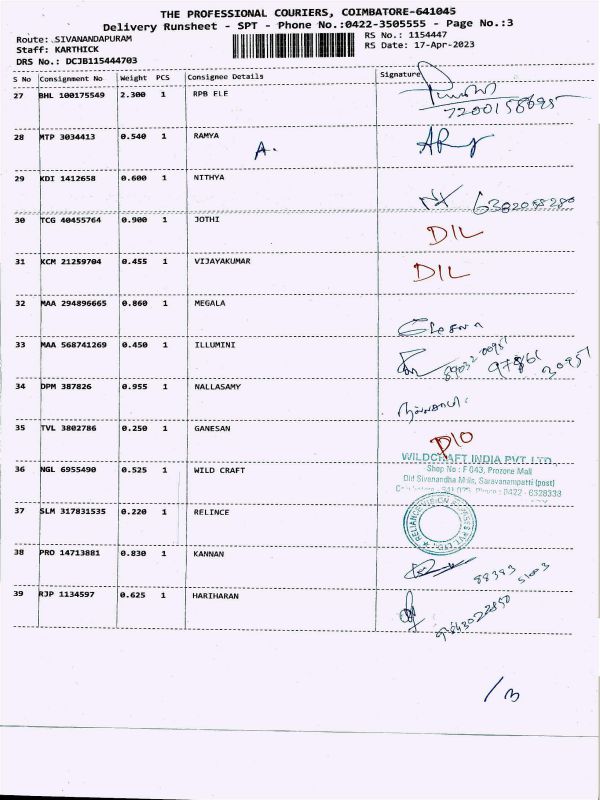 THE PROFESSIONAL COURIERS, COIMBATORE-641045
Delivery Runsheet - SPT - Phone No.:0422-3505555 - Page No.:3
Route: SIVANANDAPURAM RS No.: 1154447
Staff: KARTHICK RS Date: 17-Apr-2023
DRS No.: DCJB115444703
S No Consignment No Weight PCS Consignee Details Signature
27 BHL 100175549 2.300 1 RPB ELE
28 MTP 3034413 0.540 1 RAMYA
A.
29 KDI 1412658 0.600 1 NITHYA
30 TCG 40455764 0.900 1 JOTHI DIL
31 KCM 21259704 0.455 1 VIJAYAKUMAR DIL
32 MAA 294896665 0.860 1 MEGALA
33 MAA 568741269 0.450 1 ILLUMINI
34 DPM 387826 0.955 1 NALLASAMY
35 TVL 3802786 0.250 1 GANESAN
WILDCRAFT INDIA PVT. LTD.
36 NGL 6955490 0.525 1 WILD CRAFT Shop No : F 043, Prozone Mall
Old Sivanandha Mills, Saravanampatti (post)
Phone : 0422 - 6328333
37 SLM 317831535 0.220 1 RELINCE
38 PRO 14713881 0.830 1 KANNAN
39 RJP 1134597 0.625 1 HARIHARAN